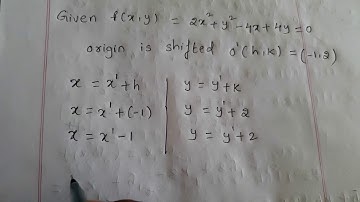 Given f(x,y) = 2x²+y²-4x+4y=0
origin is shifted o'(h,k)=(-1,2)
x = x'+h | y = y'+k
x = x'+(-1) | y = y'+2
x = x'-1 | y = y'+2